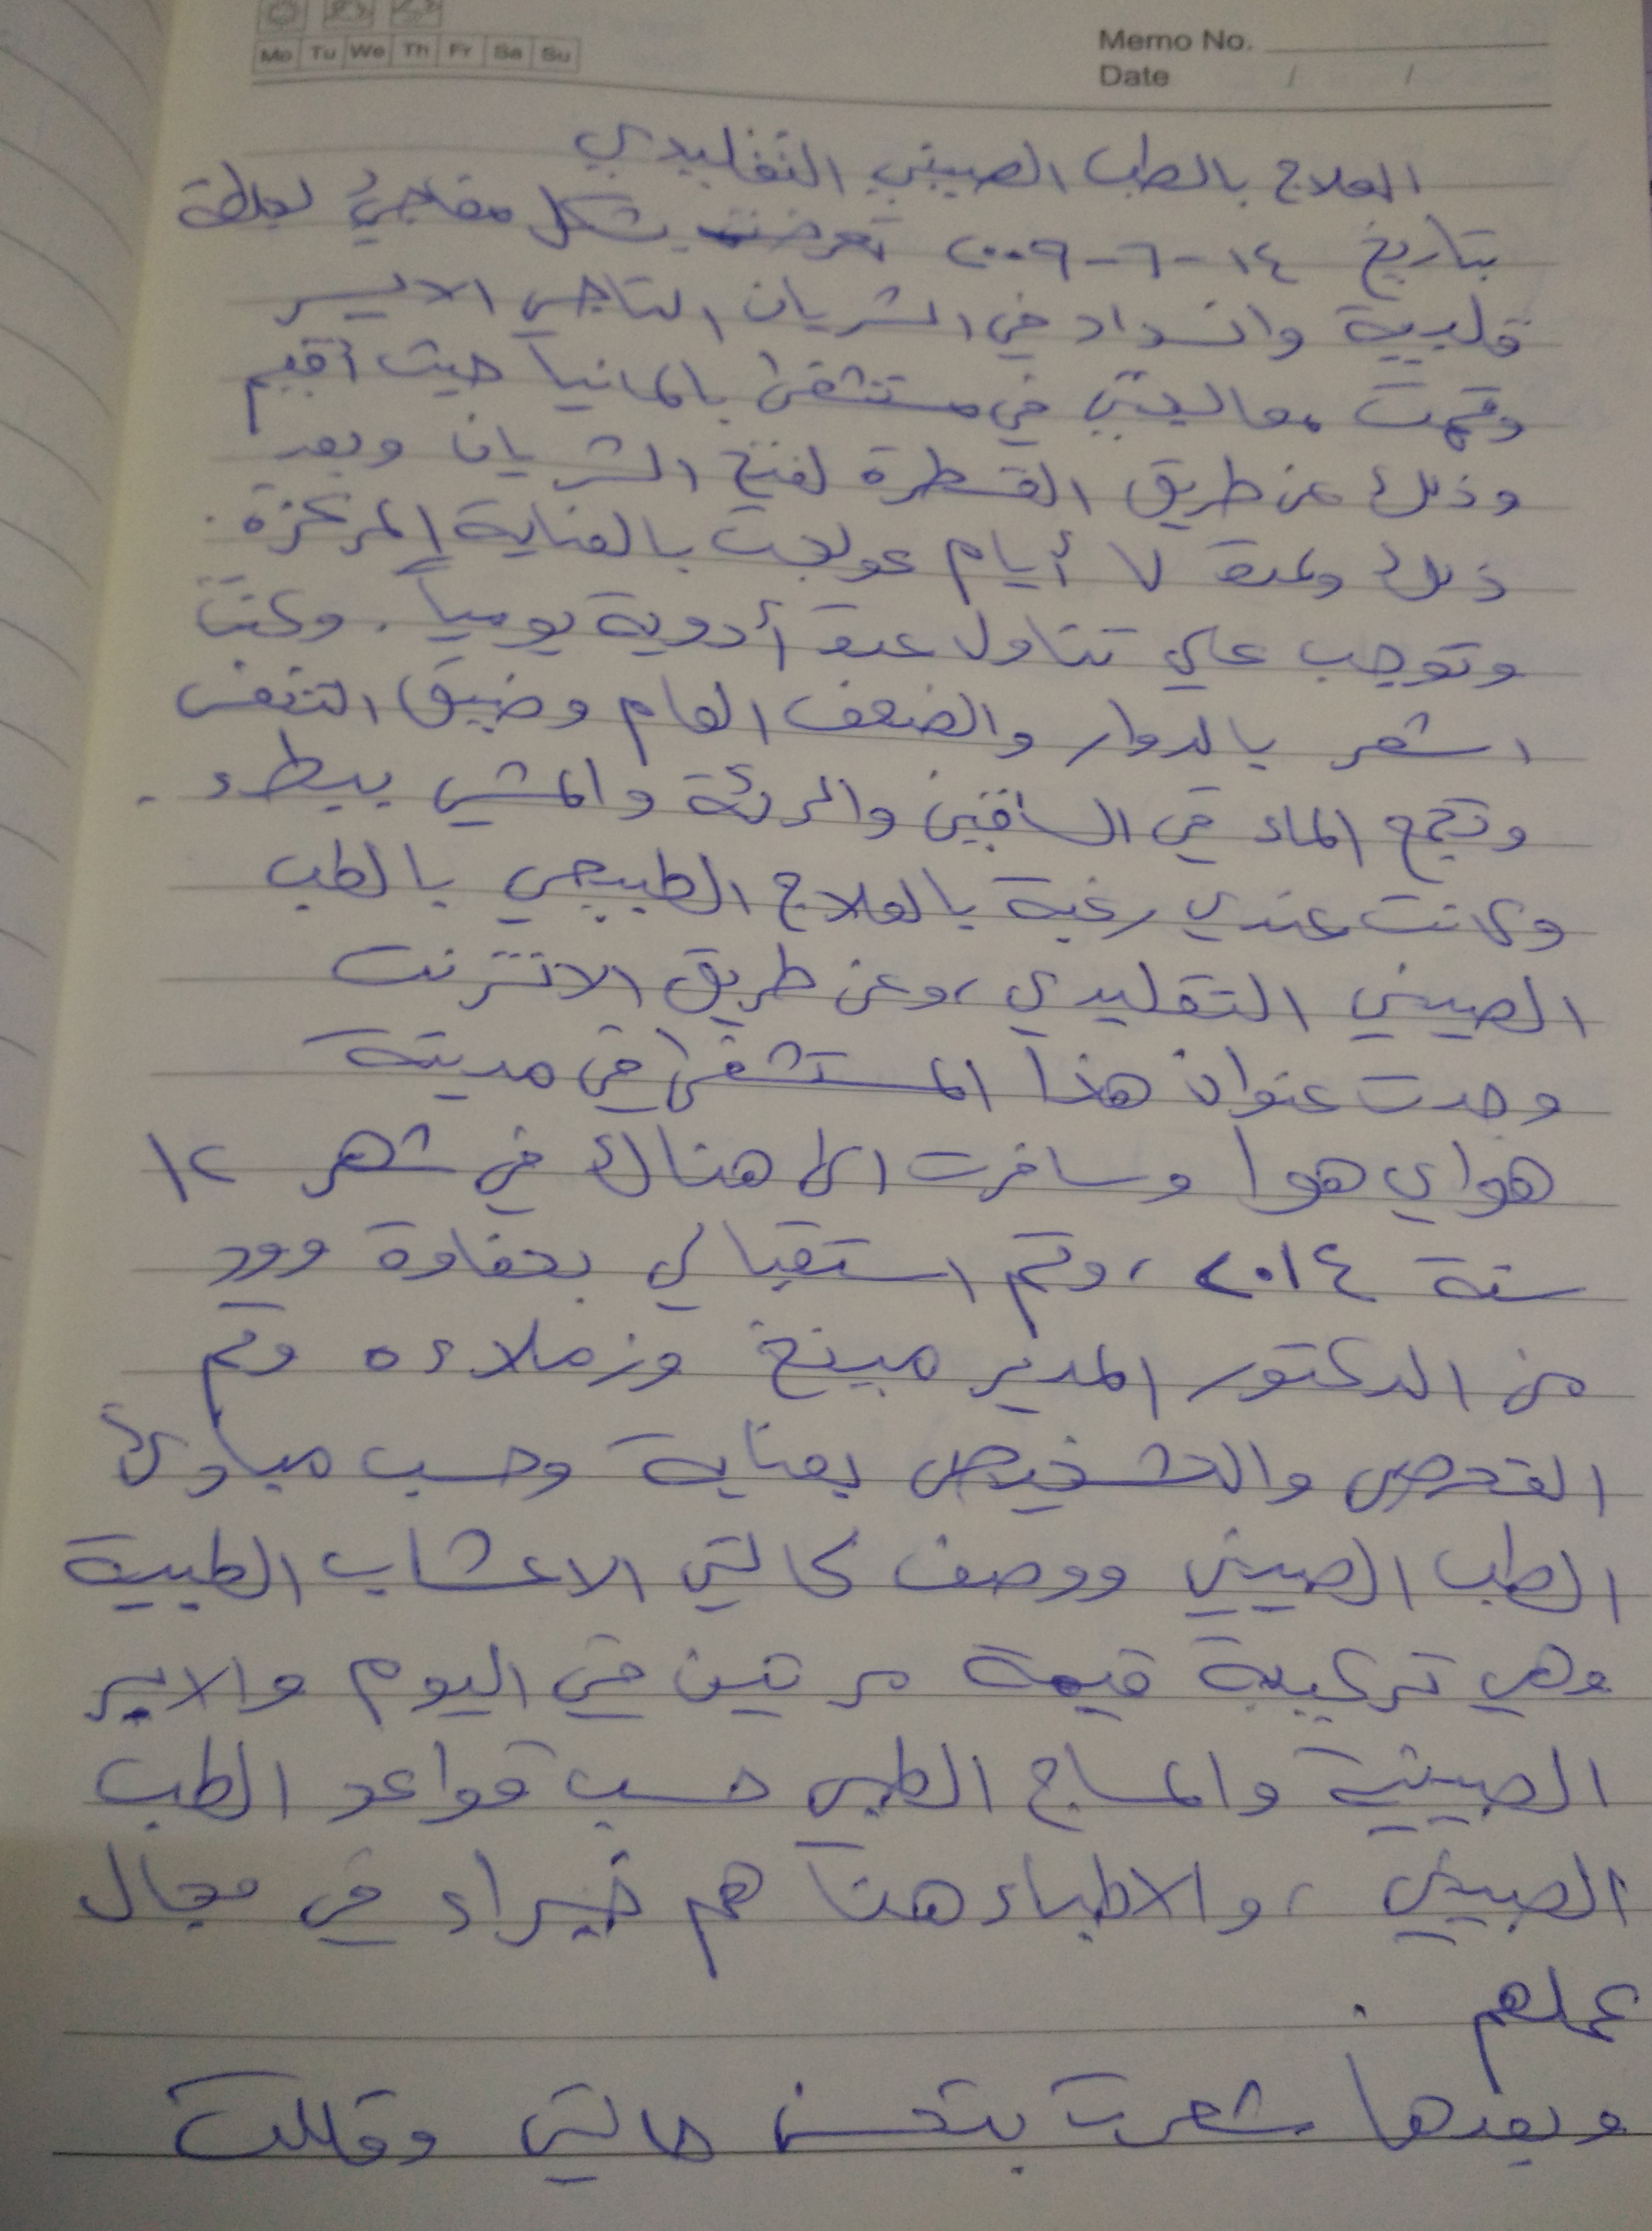 Mo Tu We Th Fr Sa Su
Memo No.
Date / /
العلاج بالطب الصيني التقليدي
بتاريخ ١٤-٦-٢٠٠٩ تعرضت بشكل مفاجئ لجلطة
قلبية وانسداد في الشريان التاجي الايسر
وتمت معالجتي في مستشفى بالمانيا حيث أقيم
وذلك عن طريق القسطرة لفتح الشريان وبعد
ذلك ولمدة ٧ أيام عولجت بالعناية المركزة .
وتوجب علي تناول عدة أدوية يومياً . وكنت
اشعر بالدوار والضعف العام وضيق التنفس
وتجمع الماء في الساقين والرئة والمشي ببطء .
وكانت عندي رغبة بالعلاج الطبيعي بالطب
الصيني التقليدي ، وعن طريق الانترنت
وجدت عنوان هذا المستشفى في مدينة
هواي هوا وسافرت الى هناك في شهر ١٢
سنة ٢٠١٤ ، وتم استقبالي بحفاوة وود
من الدكتور المدير مينغ وزملاءه وتم
الفحص والتشخيص بعناية وحسب مبادئ
الطب الصيني ووصف لحالتي الاعشاب الطبية
وهي تركيبة قيمة مرتين في اليوم والابر
الصينية والمساج الطبي حسب قواعد الطب
الصيني ، والاطباء هنا هم خبراء في مجال
عملهم .
وبعدها شعرت بتحسن حالتي وقللت